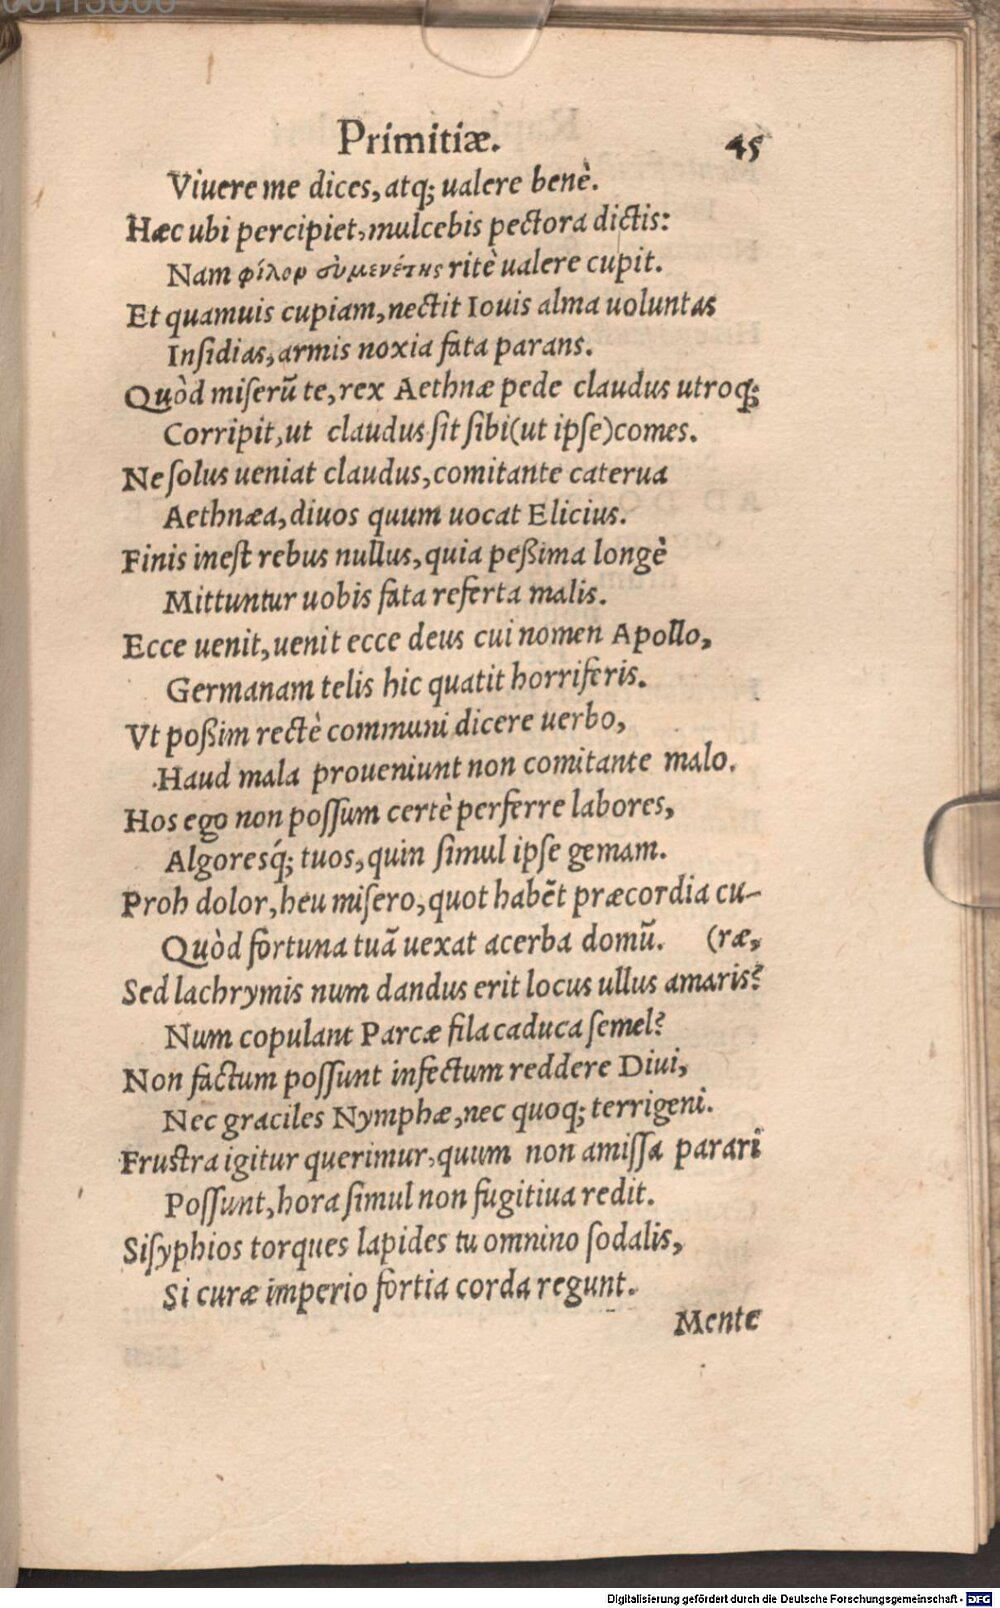 Primitiæ. 45
Viuere me dices, atq; ualere benè.
Hæc ubi percipiet, mulcebis pectora dictis:
Nam φίλορ συμενέτης ritè ualere cupit.
Et quamuis cupiam, nectit Iouis alma uoluntas
Insidias, armis noxia fata parans.
Quòd miserũ te, rex Aethnæ pede claudus utroq;
Corripit, ut claudus sit sibi (ut ipse) comes.
Ne solus ueniat claudus, comitante caterua
Aethnæa, diuos quum uocat Elicius.
Finis inest rebus nullus, quia peßima longè
Mittuntur uobis fata referta malis.
Ecce uenit, uenit ecce deus cui nomen Apollo,
Germanam telis hic quatit horriferis.
Vt poßim rectè communi dicere uerbo,
Haud mala proueniunt non comitante malo.
Hos ego non possum certè perferre labores,
Algoresq́; tuos, quin simul ipse gemam.
Proh dolor, heu misero, quot habẽt præcordia cu-
Quòd fortuna tuã uexat acerba domũ. (ræ,
Sed lachrymis num dandus erit locus ullus amaris?
Num copulant Parcæ fila caduca semel?
Non factum possunt infectum reddere Diui,
Nec graciles Nymphæ, nec quoq; terrigeni.
Frustra igitur querimur, quum non amissa parari
Possunt, hora simul non fugitiua redit.
Sisyphios torques lapides tu omnino sodalis,
Si curæ imperio fortia corda regunt.
Mente
Digitalisierung gefördert durch die Deutsche Forschungsgemeinschaft - DFG